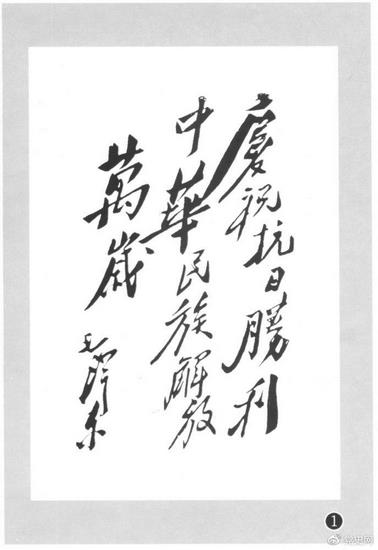 慶祝抗日勝利
中華民族解放
萬歲
毛澤東
1